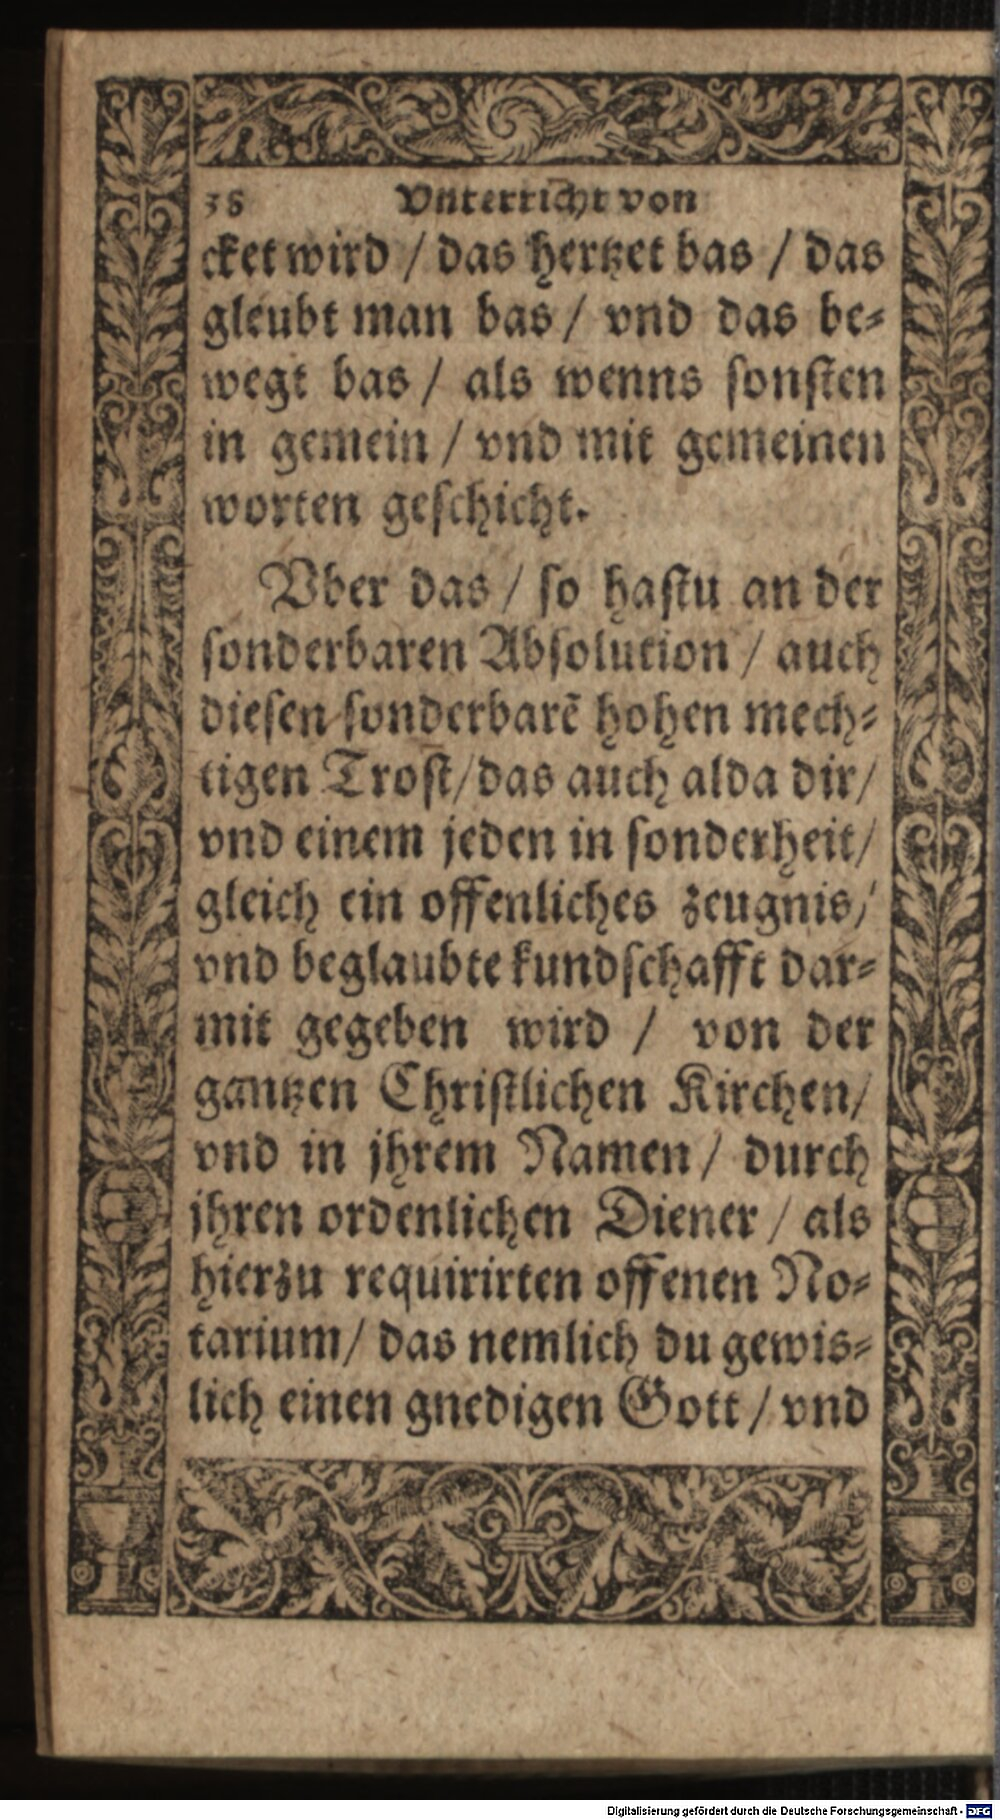 38 Vnterricht von
cket wird / das hertzet bas / das
gleubt man bas / vnd das be⸗
wegt bas / als wenns sonsten
in gemein / vnd mit gemeinen
worten geschicht.
Vber das / so hastu an der
sonderbaren Absolution / auch
diesen sonderbarẽ hohen mech⸗
tigen Trost / das auch alda dir /
vnd einem jeden in sonderheit /
gleich ein offenliches zeugnis /
vnd beglaubte kundschafft dar⸗
mit gegeben wird / von der
gantzen Christlichen Kirchen /
vnd in jhrem Namen / durch
jhren ordenlichen Diener / als
hierzu requirirten offenen No⸗
tarium / das nemlich du gewis⸗
lich einen gnedigen Gott / vnd
Digitalisierung gefördert durch die Deutsche Forschungsgemeinschaft - DFG